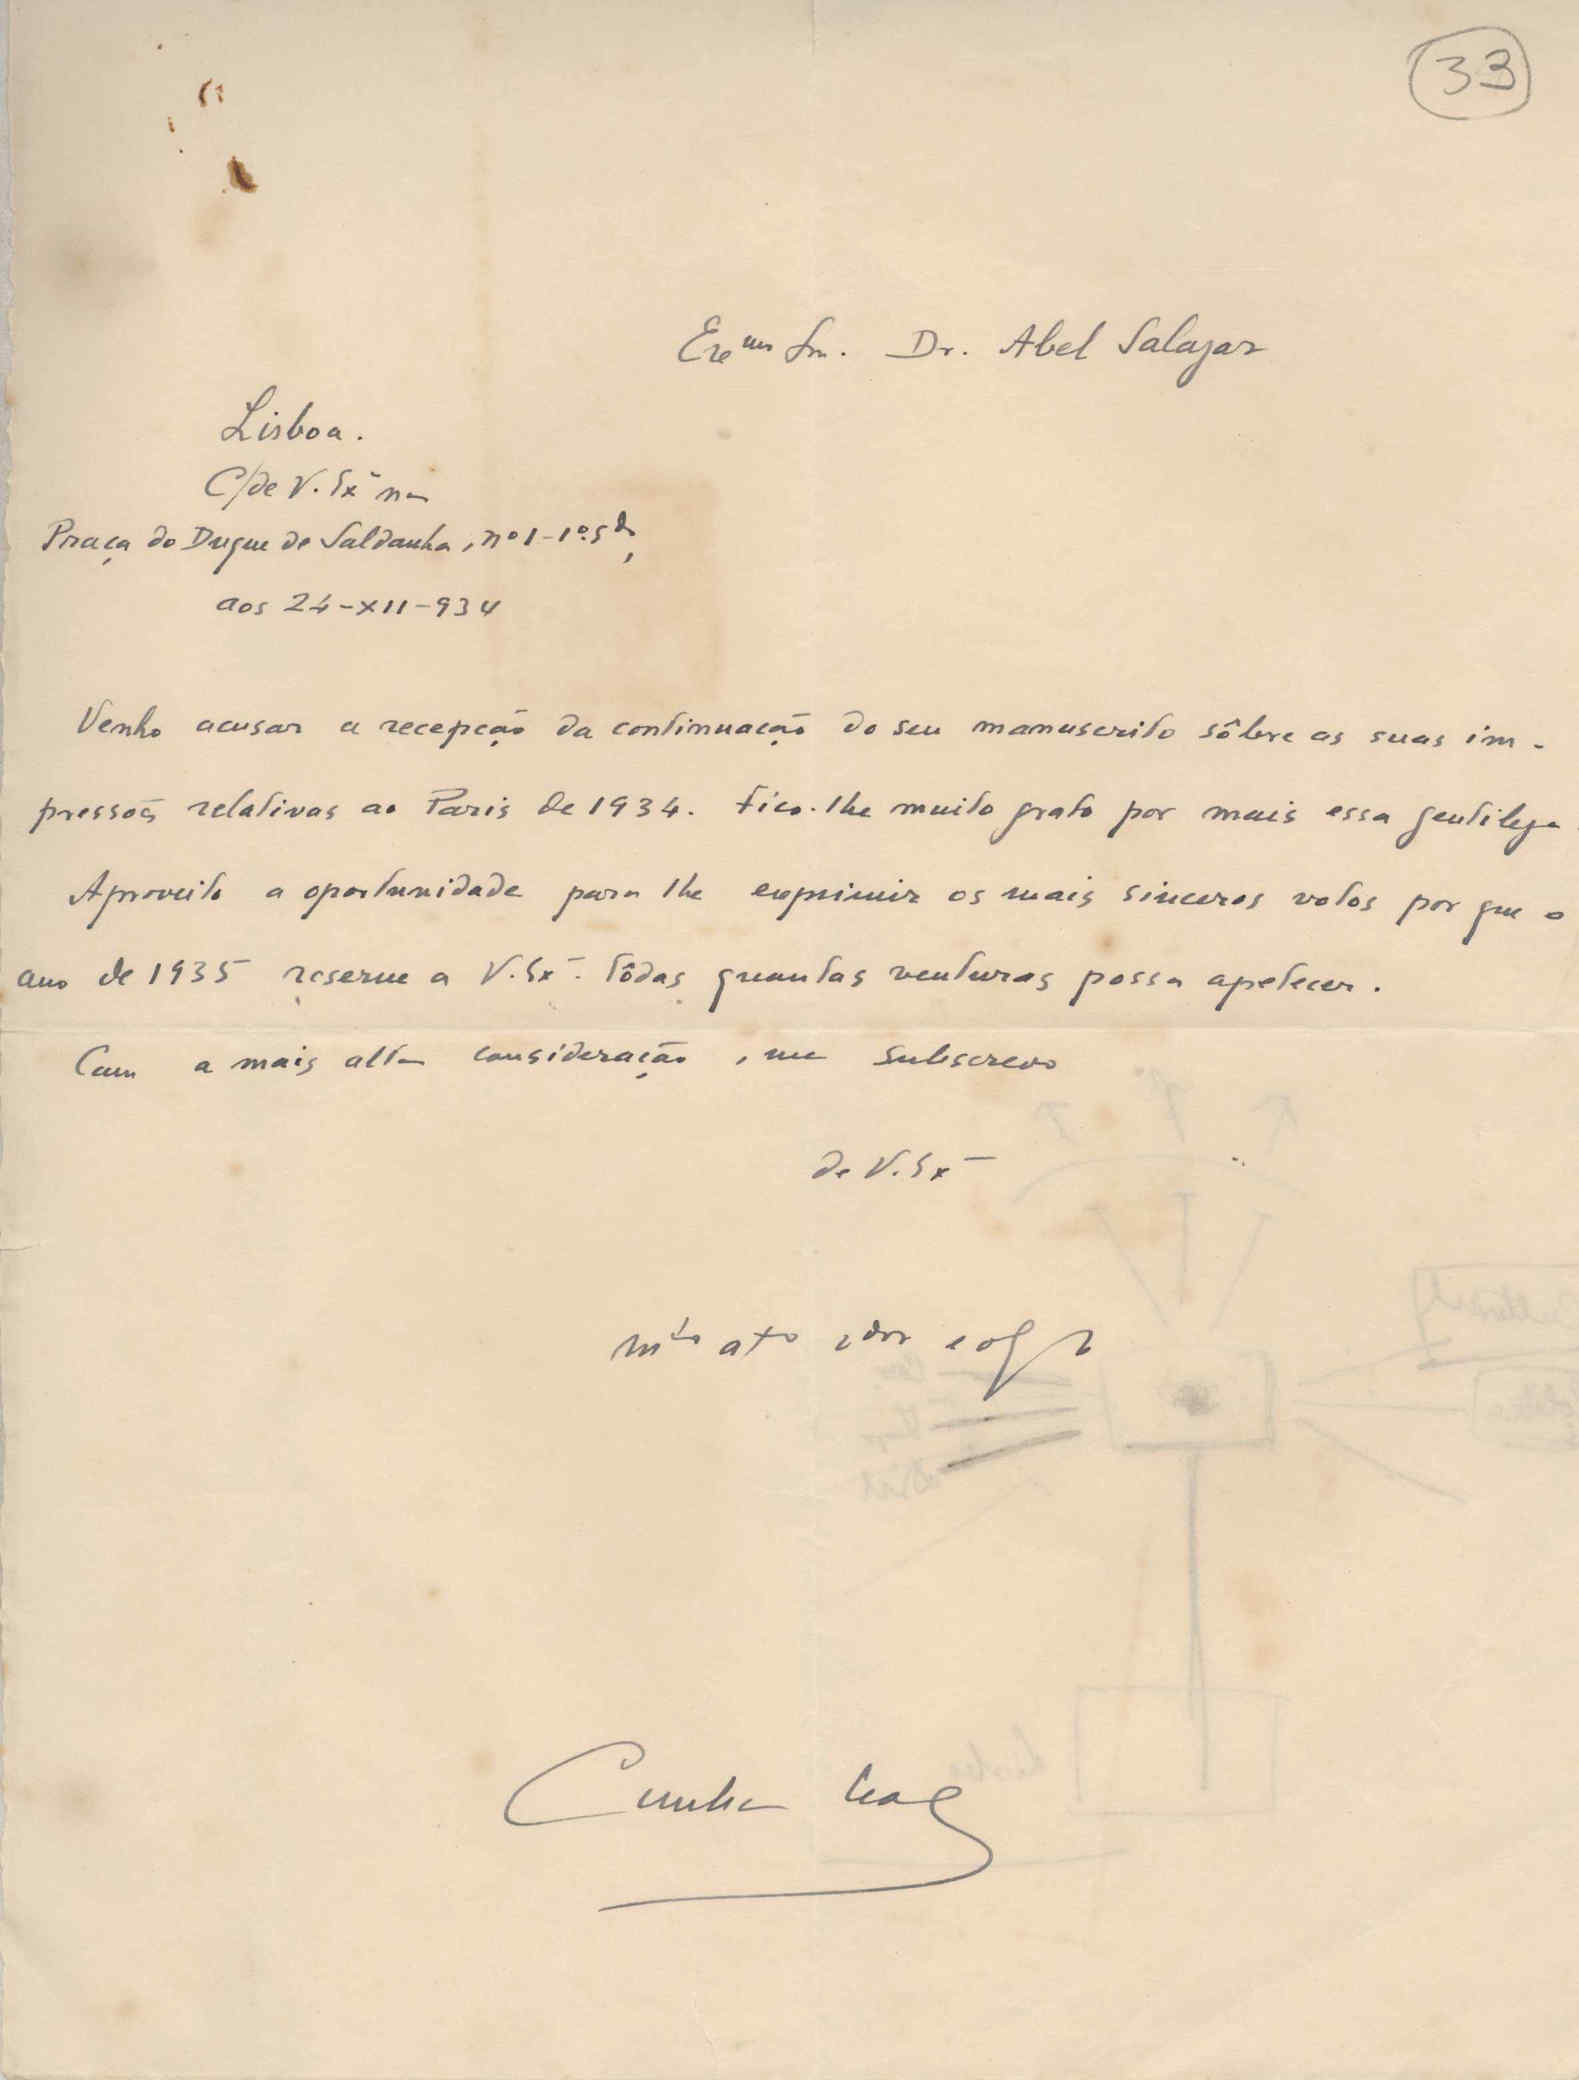 33
Exe mo Snr. Dr. Abel Salazar
Lisboa.
C/de V. Exª na
Praça do Duque de Saldanha, nº 1-1º. Edo,
aos 24-XII-934
Venho acusar a recepção da continuação do seu manuscrito sôbre as suas im-
pressões relativas ao Paris de 1934. Fico-lhe muito grato por mais essa gentileza.
Aproveito a oportunidade para lhe exprimir os mais sinceros votos por que o
ano de 1935 reserve a V. Exª. tôdas quantas venturas possa apetecer.
Com a mais alta consideração, me subscrevo
de V. Exª
mto ato
Cunha Leal